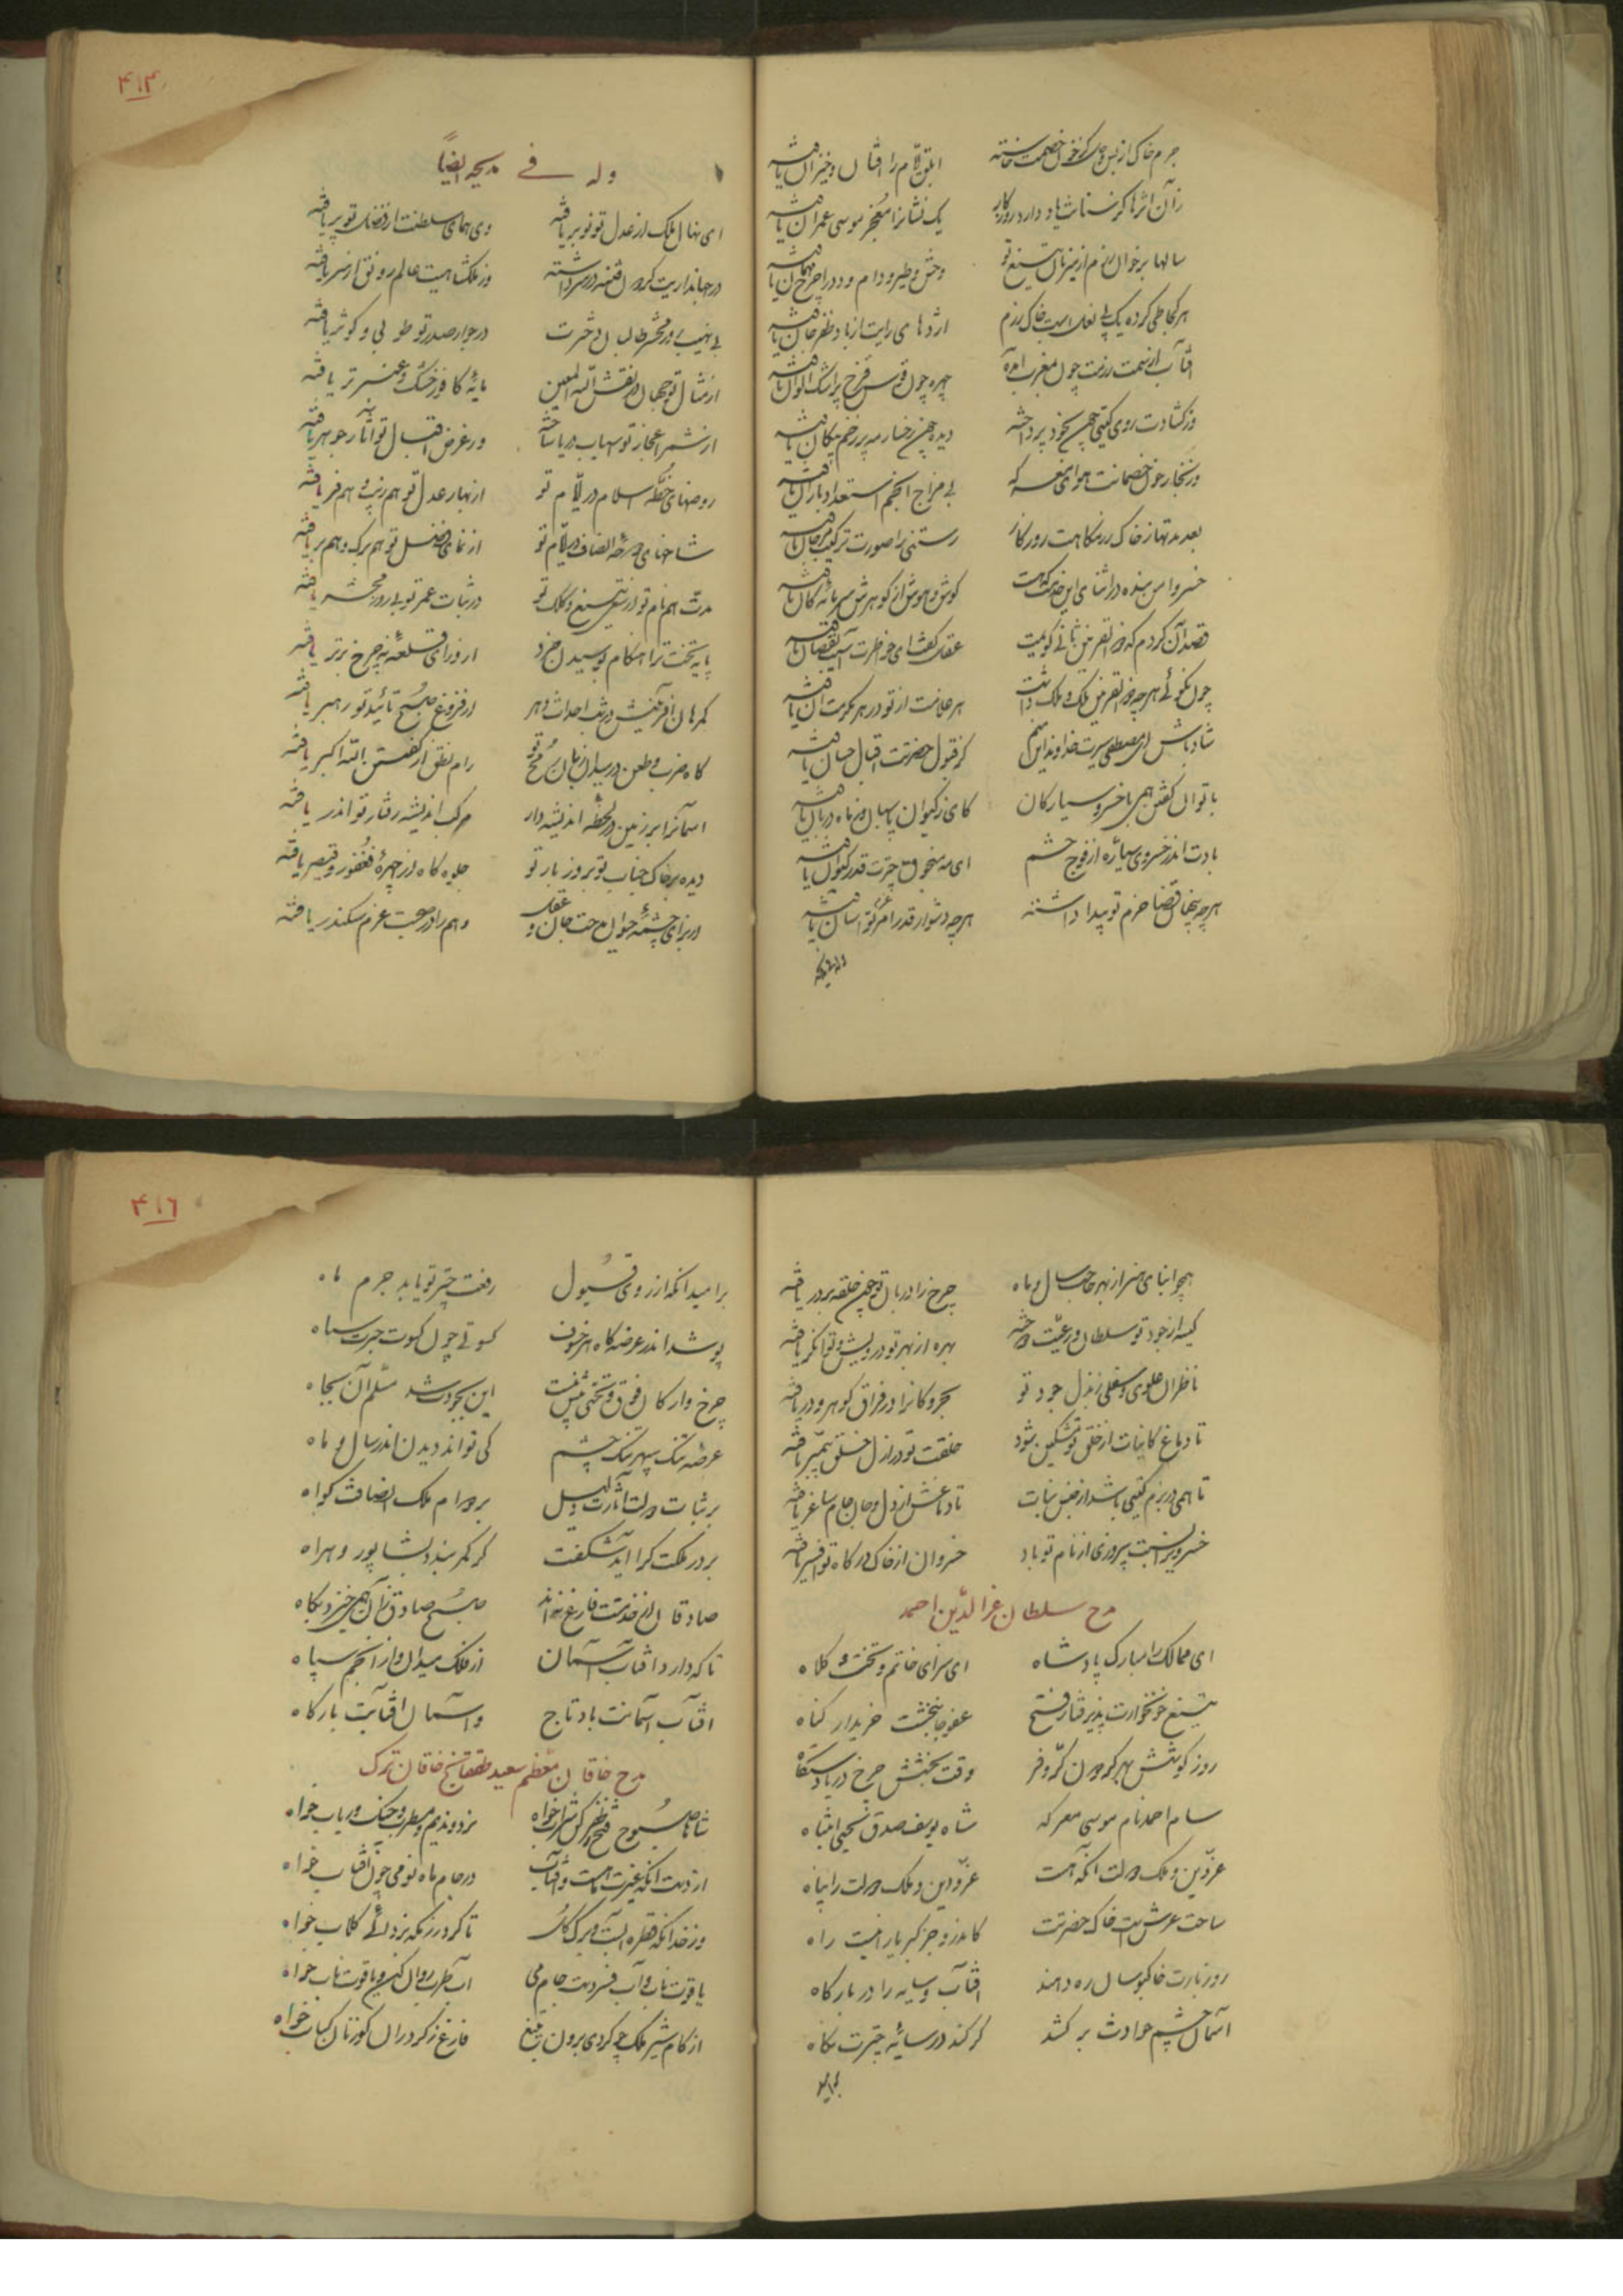 جرم خاک از بس که خون خصمت خاسته ابلق ایام را افتان و خیزان یافته
زان اثرها کز سنانت یاد دارد روزگار یک نشانرا معجز موسی عمران یافته
سالها بر خوان رزم از میزبان تیغ تو وحش و طیر و دام و دد را چرخ مهمان یافته
هر کجا طی کرده یک پی نعل اسبت خاک رزم اژدهای رایت از باد ظفر جان یافته
آفتاب از سمت رزمت چون بمغرب آمده چهره چون قوس قزح پر اشک الوان یافته
وز گشادت روی گیتی چون بخود پرداخته دیده چون رخسار مه پر زخم پیکان یافته
وز بخار خون خصمانت هوای معرکه بی مزاج انجم استعداد باران یافته
بعد مدتها ز خاک رزمگاهت روزگار رستنی را صورت ترکیب مرجان یافته
خسروا من بنده در اثنای این خدمت که هست گوش و هوش از گوهرش سرمایه کان یافته
قصد آن کردم که ذوالقرنین ثانی گویمت عقل گفت ای خاطرت آسیب نقصان یافته
چون نگوئی هر چه ذوالقرنین ملک و ملک داشت هر غلامت از تو در هر مکرمت آن یافته
شاد باش ای مصطفی سیرت خداوند این منم کز قبول حضرتت اقبال حسان یافته
با توان گفتن همی با خسرو سیارگان کای ز کیوان پاسبان وز ماه دربان یافته
بادت اندر خسروی سیاره از فوج حشم ای مه منجوق چترت قدر کیوان یافته
هر چه پنهان قضا حزم تو پیدا داشته هر چه دشوار قدر عزم تو آسان یافته
وله فی مدیحه ایضاً
ای نهال ملک از عدل تو نو بر یافته وی همای سلطنت از فضل تو پر یافته
در جهانداریت گردون فتنه در سر داشته وز ملکشاهیت عالم رونق از سر یافته
بی نهیب روز محشر طالبان حشرت در جوار صدر تو طوبی و کوثر یافته
از مثال تو جهان در نقش الله المعین مایه کافور خشک و عنبر تر یافته
ور غرض اقبال تو آثار جوهر یافته
روضهای خطه اسلام در ایام تو از بهار عدل تو هم زیب و هم فر یافته
شاخهای دوحه انصاف در ایام تو از نمای فضل تو هم برگ و هم بر یافته
مدت همنام تو از تیغ و کلک تو در ثبات عمر تو تا روز محشر یافته
پایه تخت ترا هنگام بوسیدن خرد از ورای قلعه نه چرخ برتر یافته
گمرهان آفرینش در شب احداث دهر از فروغ صبح تائید تو رهبر یافته
گاه ضرب و طعن در میدان زبان رمح تو رام نطق از گفتن الله اکبر یافته
آسمانرا بر زمین در لحظه اندیشه‌وار مرکب اندیشه رفتار تو اندر یافته
دیده بر خاک جناب تو بروز بار تو جلوه‌گاه از چهره فغفور و قیصر یافته
از برای چشمه حیوان مدحت جان و عقل وهم را در صحبت عزم سکندر یافته
۴۱۴
همچو ابنای هنر از بهر حاجت سال و ماه چرخ را دربان تو چون حلقه بر در یافته
کیسه از جود تو سلطان و رعیت دوخته بهره از بهر تو درویش و توانگر یافته
ناظران علوی و سفلی ز بذل جود تو بحر و کانرا در فراق گوهر و زر یافته
تا دماغ کاینات از خلق تو مشکین شود خلقت تو در ازل خلق پیمبر یافته
تا همی در بزم گیتی باشد از جنس نبات تا دماغش از دل و جان جام ساغر یافته
خسرویرا نسبت پیروزی از نام تو باد خسروان از خاک درگاه تو افسر یافته
مدح سلطان عز الدین احمد
ای ممالک را مبارک پادشاه ای سزای خاتم و تخت و کلاه
تیغ خونخوارت پذیرفتار فتح عفو جان‌بخشت خریدار گناه
روز کوشش بهر گردون کر و فر وقت بخشش چرخ دریا دستگاه
سام احمد نام موسی معرکه شاه یوسف صدق یحیی انتباه
عز دین و ملک و دولت آنکه هست عز و دین و ملک و دولت را پناه
ساحت عرش است خاک حضرتت کاندرو جز کبریا را نیست راه
روز بارت خاکبوسان ره دهند آفتاب و سایه را در بارگاه
آسمان چشم حوادث بر کشد گر کند در سایه چترت نگاه
بر امید آنکه از روی قبول رفعت چتر تو یابد جرم ماه
پوشد اندر عرضه گاه هر خسوف کسوتی چون کسوت چترت سیاه
این بجودت شد مسلم آن بجاه
عرضه ننگ سپهر تنگ چشم کی تواند دیدن اندر سال و ماه
بر ثبات دولتت آثارت دلیل بر دوام ملک انصافت گواه
بر در ملکت کرا آید شگفت گر کمر بندد بشاپور و هراه
صادقان از خدمتت فارغ نیند صبح صادق زان همی خیزد پگاه
تا که دارد آفتاب آسمان از فلک میدان و از انجم سپاه
آفتاب آسمانت باد تاج و آسمان آفتابت بارگاه
مدح خاقان معظم سعید طفقاج خاقان ترک
شاها صبوح فتح و ظفر کن شراب خواه نرد و ندیم و مطرب و چنگ و رباب خواه
از دست آنکه غیرت ماهست و آفتاب در جام ماه نو می چون آفتاب خواه
وز خد آنکه قطره آبست و برگ گل تا گرد رزمگه بزدائی گلاب خواه
یاقوت ناب و آب فسرده‌ست جام می آب طرب روان کن و یاقوت ناب خواه
از کام شیر ملک چو کردی برون بتیغ فارغ ز گرد ران گوزنان کباب خواه
۴۱۶